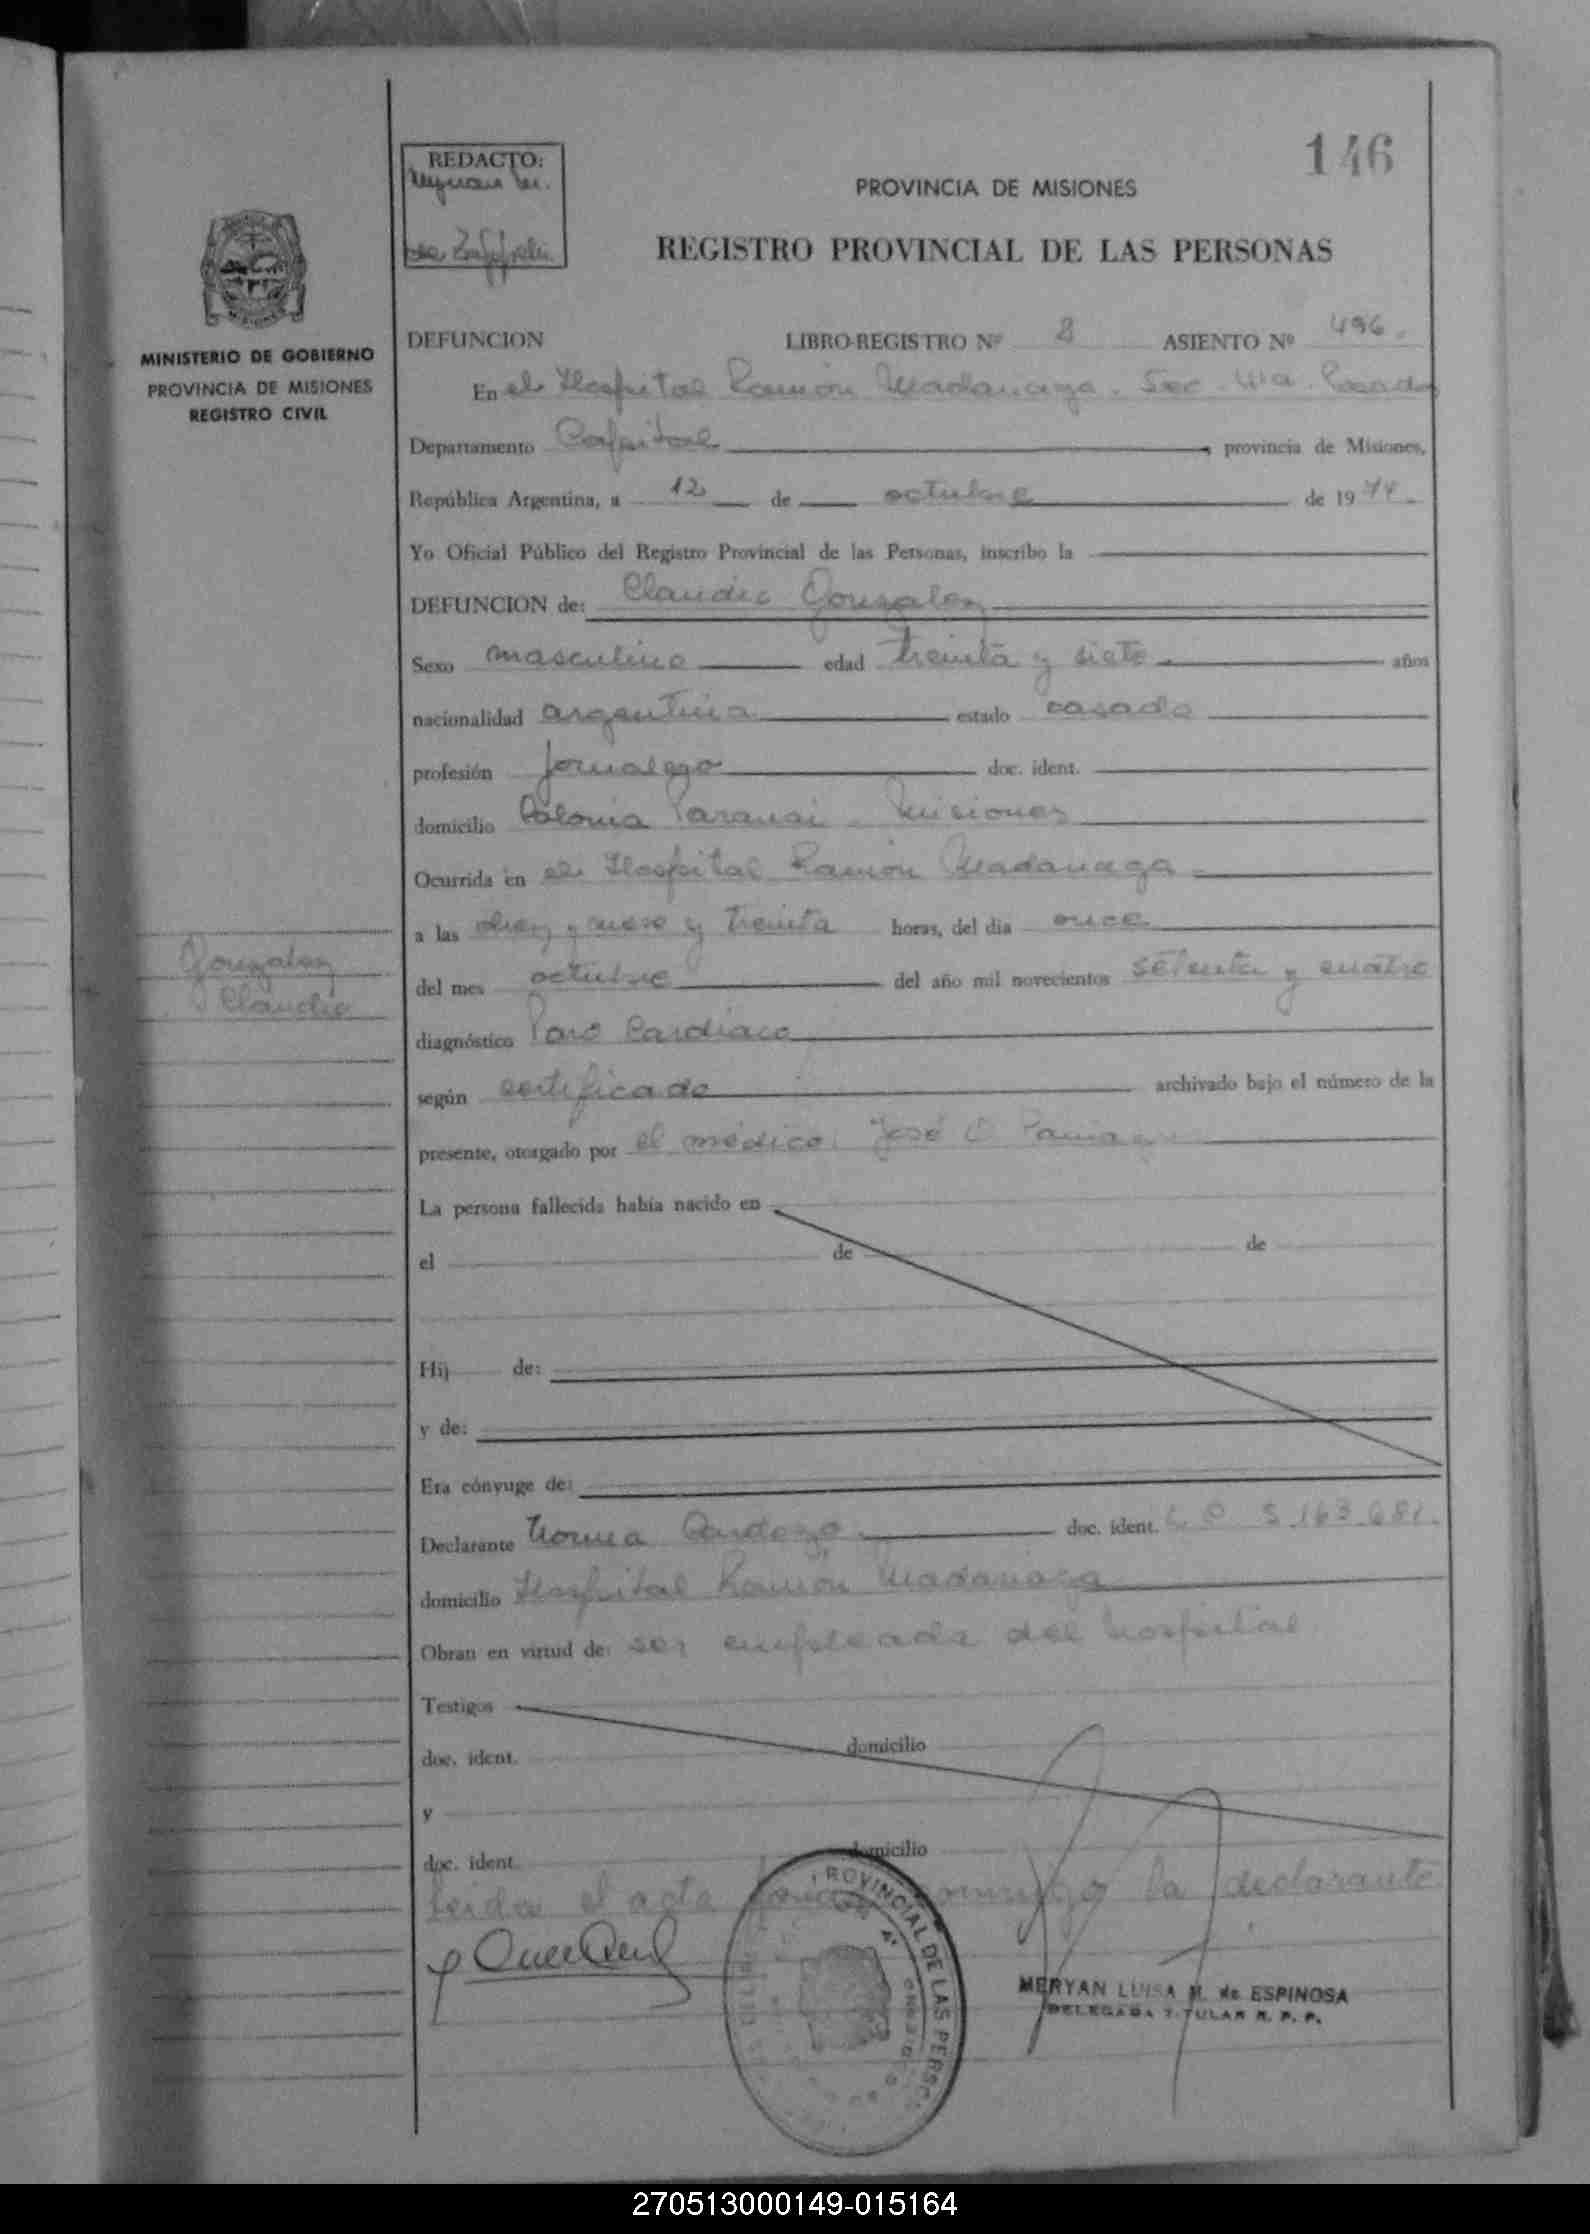 146
REDACTO:
PROVINCIA DE MISIONES
REGISTRO PROVINCIAL DE LAS PERSONAS
MINISTERIO DE GOBIERNO
PROVINCIA DE MISIONES
REGISTRO CIVIL
DEFUNCION LIBRO-REGISTRO Nº 8 ASIENTO Nº 496.
En el Hospital Ramón Madariaga. Sec. Posadas
Departamento Capital, provincia de Misiones,
República Argentina, a 12 de octubre de 1974.
Yo Oficial Público del Registro Provincial de las Personas, inscribo la
DEFUNCION de: Claudio Gonzalez
Sexo masculino edad treinta y siete años
nacionalidad argentina estado casado
profesión jornalero doc. ident.
domicilio Colonia Paranai - Misiones
Ocurrida en el Hospital Ramón Madariaga
a las diez y nueve y treinta horas, del dia once
del mes octubre del año mil novecientos setenta y cuatro
Gonzalez
Claudio
diagnóstico Paro Cardiaco
según certificado archivado bajo el número de la
presente, otorgado por el médico: José O
La persona fallecida había nacido en
el de de
Hij de:
y de:
Era cónyuge de:
Declarante Norma Cardozo doc. ident. L C 5.163.681.
domicilio Hospital Ramón Madariaga
Obran en virtud de: ser empleada del hospital.
Testigos
doc. ident. domicilio
y
doc. ident. domicilio
Leida el acta firma conmigo la declarante
PROVINCIAL DE LAS PERSO
MERYAN LUISA M. de ESPINOSA
DELEGADA TITULAR R. P. P.
270513000149-015164